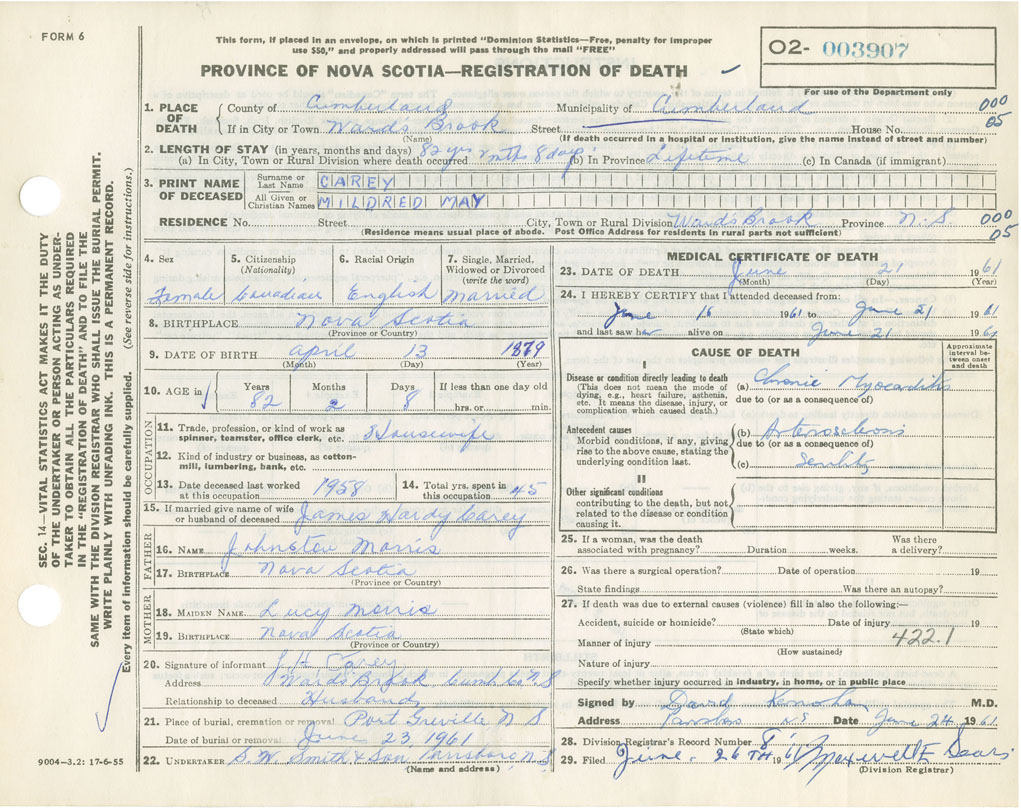 FORM 6
This form, if placed in an envelope, on which is printed "Dominion Statistics—Free, penalty for improper
use $50," and properly addressed will pass through the mail "FREE"
O2- 003907
For use of the Department only
PROVINCE OF NOVA SCOTIA—REGISTRATION OF DEATH
SEC. 14—VITAL STATISTICS ACT MAKES IT THE DUTY
OF THE UNDERTAKER OR PERSON ACTING AS UNDER-
TAKER TO OBTAIN ALL THE PARTICULARS REQUIRED
IN THE "REGISTRATION OF DEATH" AND TO FILE THE
SAME WITH THE DIVISION REGISTRAR WHO SHALL ISSUE THE BURIAL PERMIT.
WRITE PLAINLY WITH UNFADING INK. THIS IS A PERMANENT RECORD.
Every item of information should be carefully supplied. (See reverse side for instructions.)
1. PLACE OF DEATH
County of Cumberland Municipality of Cumberland 000
If in City or Town Wards Brook Street House No. 05
(Name) (If death occurred in a hospital or institution, give the name instead of street and number)
2. LENGTH OF STAY (in years, months and days)
(a) In City, Town or Rural Division where death occurred 82 yrs 2 mths 8 days (b) In Province Lifetime (c) In Canada (if immigrant)
3. PRINT NAME OF DECEASED
Surname or Last Name CAREY
All Given or Christian Names MILDRED MAY
RESIDENCE No. Street City, Town or Rural Division Wards Brook Province N.S. 000
(Residence means usual place of abode. Post Office Address for residents in rural parts not sufficient) 05
4. Sex Female
5. Citizenship (Nationality) Canadian
6. Racial Origin English
7. Single, Married, Widowed or Divorced (write the word) Married
8. BIRTHPLACE Nova Scotia
(Province or Country)
9. DATE OF BIRTH april 13 1879
(Month) (Day) (Year)
10. AGE in Years 82 Months 2 Days 8 If less than one day old hrs. or min.
OCCUPATION
11. Trade, profession, or kind of work as
spinner, teamster, office clerk, etc. Housewife
12. Kind of industry or business, as cotton-
mill, lumbering, bank, etc.
13. Date deceased last worked
at this occupation 1958
14. Total yrs. spent in
this occupation 45
15. If married give name of wife
or husband of deceased James Hardy Carey
FATHER
16. NAME Johnston Morris
17. BIRTHPLACE Nova Scotia
(Province or Country)
MOTHER
18. MAIDEN NAME Lucy Morris
19. BIRTHPLACE Nova Scotia
(Province or Country)
20. Signature of informant J. H. Carey
Address Wards Brook Cumb Co N.S
Relationship to deceased Husband
21. Place of burial, cremation or removal Port Greville N S
Date of burial or removal June 23, 1961
22. UNDERTAKER S. W. Smith & Son Parrsboro N.S
(Name and address)
9004-3.2: 17-6-55
MEDICAL CERTIFICATE OF DEATH
23. DATE OF DEATH June 21 1961
(Month) (Day) (Year)
24. I HEREBY CERTIFY that I attended deceased from:
June 16 1961 to June 21 1961
and last saw her alive on June 21 1961
CAUSE OF DEATH
Approximate interval between onset and death
I
Disease or condition directly leading to death
(This does not mean the mode of
dying, e.g., heart failure, asthenia,
etc. It means the disease, injury, or
complication which caused death.)
(a) Chronic Myocarditis
due to (or as a consequence of)
Antecedent causes
Morbid conditions, if any, giving
rise to the above cause, stating the
underlying condition last.
(b) Arterosclerosis
due to (or as a consequence of)
(c) Senility
II
Other significant conditions
contributing to the death, but not
related to the disease or condition
causing it.
25. If a woman, was the death
associated with pregnancy? Duration weeks. Was there
a delivery?
26. Was there a surgical operation? Date of operation 19
State findings Was there an autopsy?
27. If death was due to external causes (violence) fill in also the following:—
Accident, suicide or homicide? Date of injury 19
(State which)
Manner of injury 422.1
(How sustained)
Nature of injury
Specify whether injury occurred in industry, in home, or in public place
Signed by David M.D.
Address Parrsboro N S Date June 24 1961
28. Division Registrar's Record Number 8
29. Filed June 26TH 1961 Maxwell E
(Division Registrar)